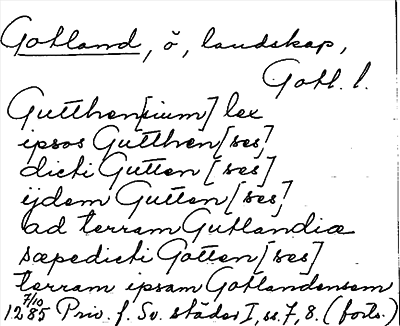 Gotland, ö, landskap,
Gotl. l.
Gutthen[sium] lex
ipsos Gutthen[ses]
dicti Gutten [ses]
ijdem Gutten [ses]
ad terram Gutlandiæ
sæpedicti Gotten [ses]
terram ipsam Gotlandensem
1285 7/10 Priv. f. Sv. städer I, ss. 7, 8. (forts.)